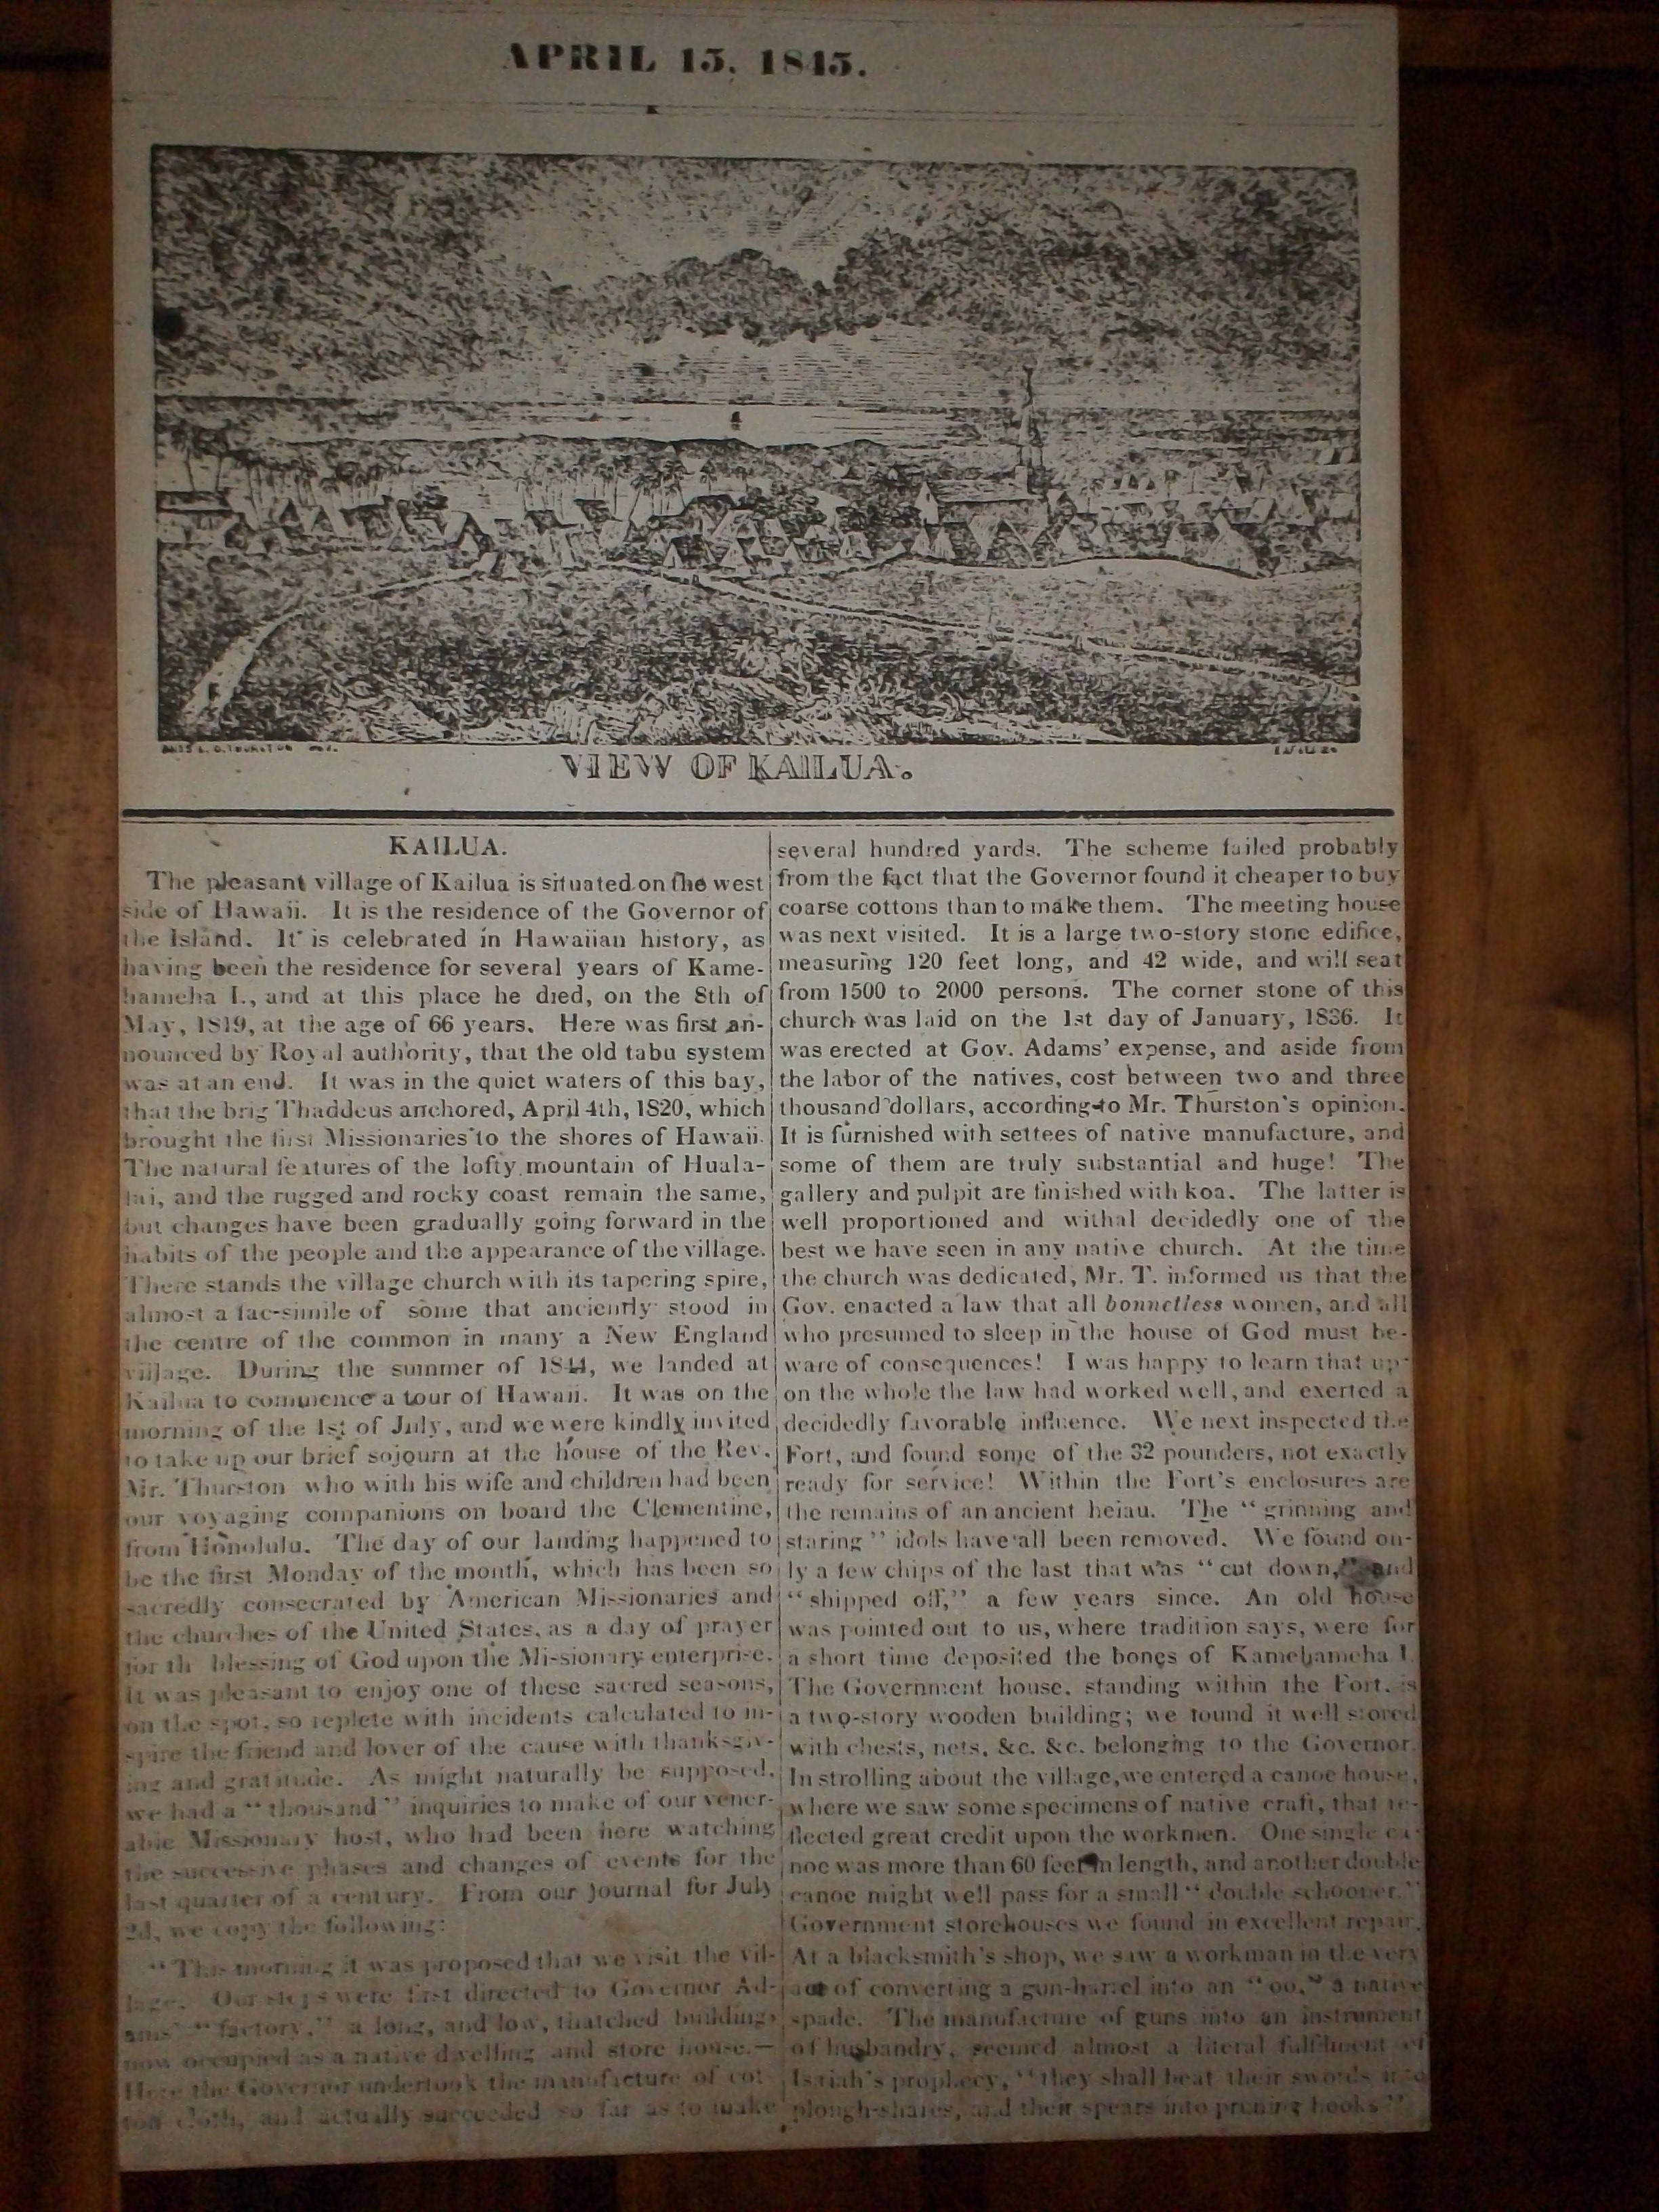 APRIL 15, 1845.
VIEW OF KAILUA.
KAILUA.
The pleasant village of Kailua is situated on the west
side of Hawaii. It is the residence of the Governor of
the Island. It is celebrated in Hawaiian history, as
having been the residence for several years of Kame-
hameha I., and at this place he died, on the 8th of
May, 1819, at the age of 66 years. Here was first an-
nounced by Royal authority, that the old tabu system
was at an end. It was in the quiet waters of this bay,
that the brig Thaddeus anchored, April 4th, 1820, which
brought the first Missionaries to the shores of Hawaii.
The natural features of the lofty mountain of Huala-
lai, and the rugged and rocky coast remain the same,
but changes have been gradually going forward in the
habits of the people and the appearance of the village.
There stands the village church with its tapering spire,
almost a fac-simile of some that anciently stood in
the centre of the common in many a New England
village. During the summer of 1844, we landed at
Kailua to commence a tour of Hawaii. It was on the
morning of the 1st of July, and we were kindly invited
to take up our brief sojourn at the house of the Rev.
Mr. Thurston who with his wife and children had been
our voyaging companions on board the Clementine,
from Honolulu. The day of our landing happened to
be the first Monday of the month, which has been so
sacredly consecrated by American Missionaries and
the churches of the United States, as a day of prayer
for th blessing of God upon the Missionary enterprise.
It was pleasant to enjoy one of these sacred seasons,
on the spot, so replete with incidents calculated to in-
spire the friend and lover of the cause with thanksgiv-
ing and gratitude. As might naturally be supposed,
we had a "thousand" inquiries to make of our vener-
able Missionary host, who had been here watching
the successive phases and changes of events for the
last quarter of a century. From our Journal for July
2d, we copy the following:
"This morning it was proposed that we visit the vil-
lage. Our steps were first directed to Governor Ad-
ams' "factory," a long, and low, thatched building,
now occupied as a native dwelling and store house.—
Here the Governor undertook the manufacture of cot-
ton cloth, and actually succeeded so far as to make
several hundred yards. The scheme failed probably
from the fact that the Governor found it cheaper to buy
coarse cottons than to make them. The meeting house
was next visited. It is a large two-story stone edifice,
measuring 120 feet long, and 42 wide, and will seat
from 1500 to 2000 persons. The corner stone of this
church was laid on the 1st day of January, 1836. It
was erected at Gov. Adams' expense, and aside from
the labor of the natives, cost between two and three
thousand dollars, according to Mr. Thurston's opinion.
It is furnished with settees of native manufacture, and
some of them are truly substantial and huge! The
gallery and pulpit are finished with koa. The latter is
well proportioned and withal decidedly one of the
best we have seen in any native church. At the time
the church was dedicated, Mr. T. informed us that the
Gov. enacted a law that all bonnetless women, and all
who presumed to sleep in the house of God must be-
ware of consequences! I was happy to learn that up-
on the whole the law had worked well, and exerted a
decidedly favorable influence. We next inspected the
Fort, and found some of the 32 pounders, not exactly
ready for service! Within the Fort's enclosures are
the remains of an ancient heiau. The "grinning and
staring" idols have all been removed. We found on-
ly a few chips of the last that was "cut down," and
"shipped off," a few years since. An old house
was pointed out to us, where tradition says, were for
a short time deposited the bones of Kamehameha I.
The Government house, standing within the Fort, is
a two-story wooden building; we found it well stored
with chests, nets, &c. &c. belonging to the Governor.
In strolling about the village, we entered a canoe house,
where we saw some specimens of native craft, that re-
flected great credit upon the workmen. One single ca-
noe was more than 60 feet in length, and another double
canoe might well pass for a small "double schooner."
Government storehouses we found in excellent repair.
At a blacksmith's shop, we saw a workman in the very
act of converting a gun-barrel into an "oo," a native
spade. The manufacture of guns into an instrument
of husbandry, seemed almost a literal fulfilment of
Isaiah's prophecy, "they shall beat their swords into
plough-shares, and their spears into pruning hooks"